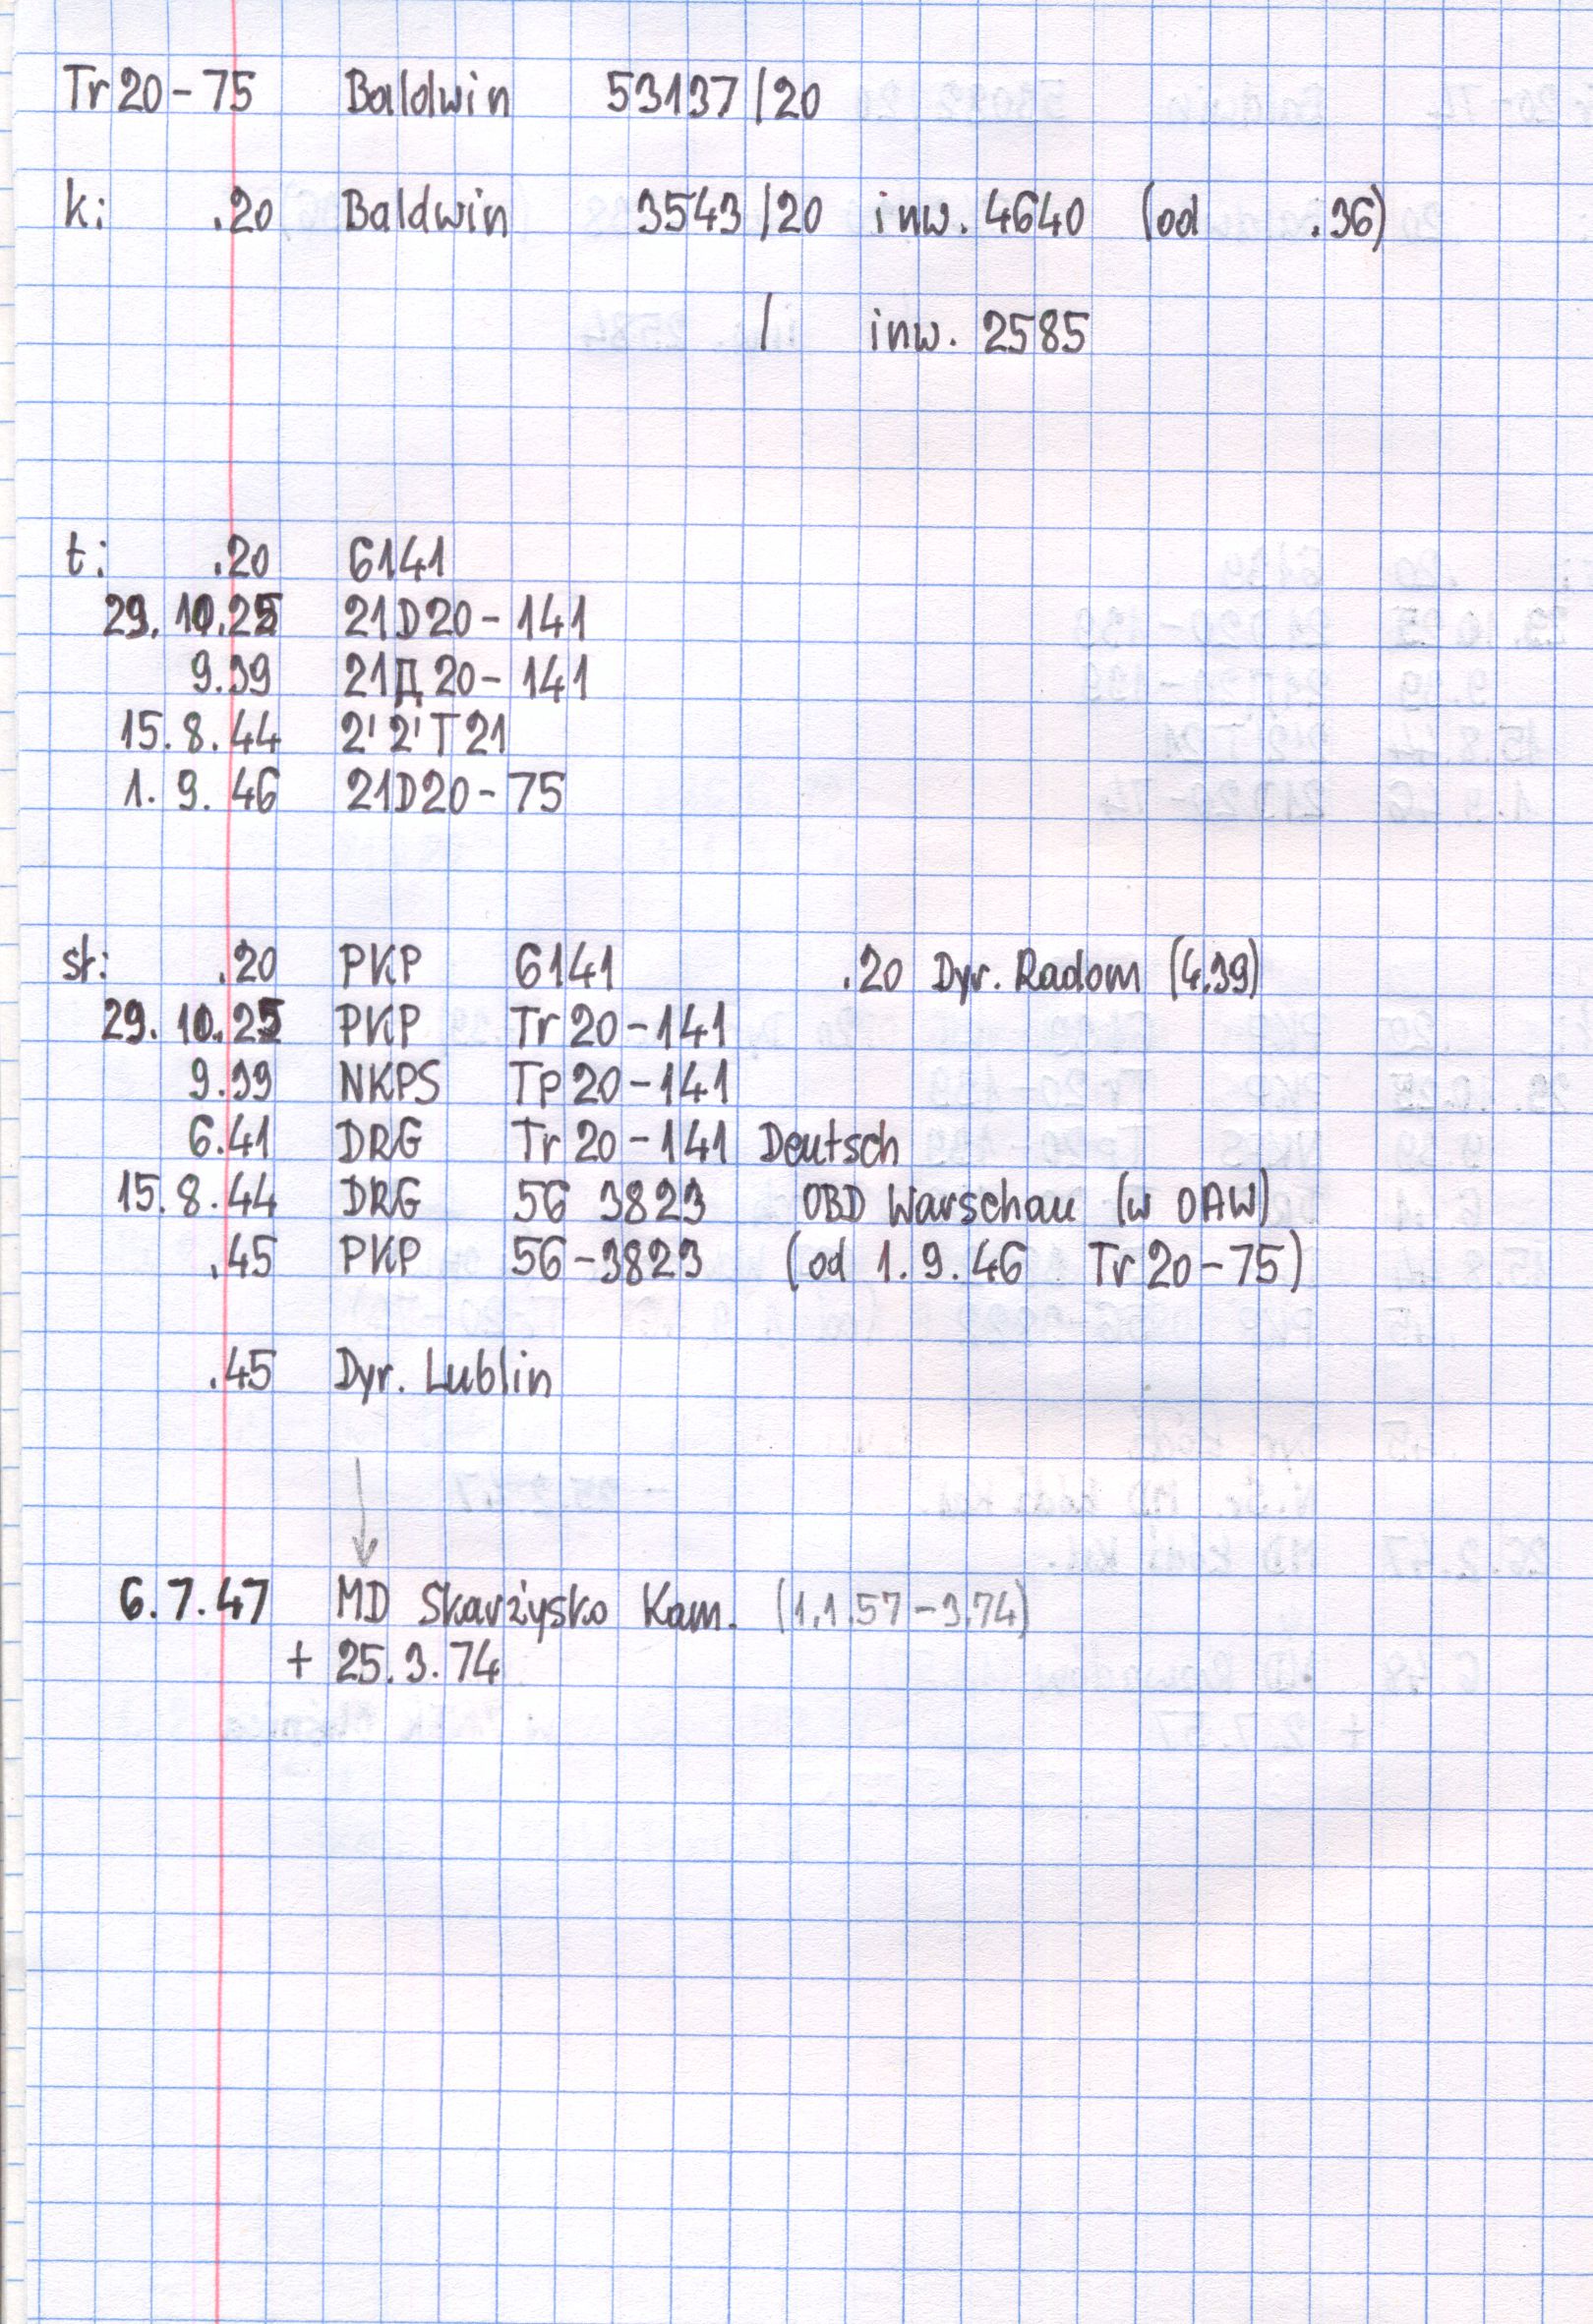 Tr 20 - 75 Baldwin 53137 / 20
k: .20 Baldwin 3543 / 20 inw. 4640 (od .36)
/ inw. 2585
t: .20 6141
29. 10. 25 21D20 - 141
9.39 21Д20 - 141
15. 8. 44 2'2'T21
1. 9. 46 21D20 - 75
st: .20 PKP 6141 .20 Dyr. Radom (4.39)
29. 10. 25 PKP Tr 20 - 141
9.39 NKPS Tp 20 - 141
6.41 DRG Tr 20 - 141 Deutsch
15. 8. 44 DRG 56 3823 OBD Warschau (w OAW)
.45 PKP 56 - 3823 (od 1. 9. 46 Tr 20 - 75)
.45 Dyr. Lublin
6. 7. 47 MD Skarżysko Kam. (1.1.57 - 3.74)
+ 25. 3. 74